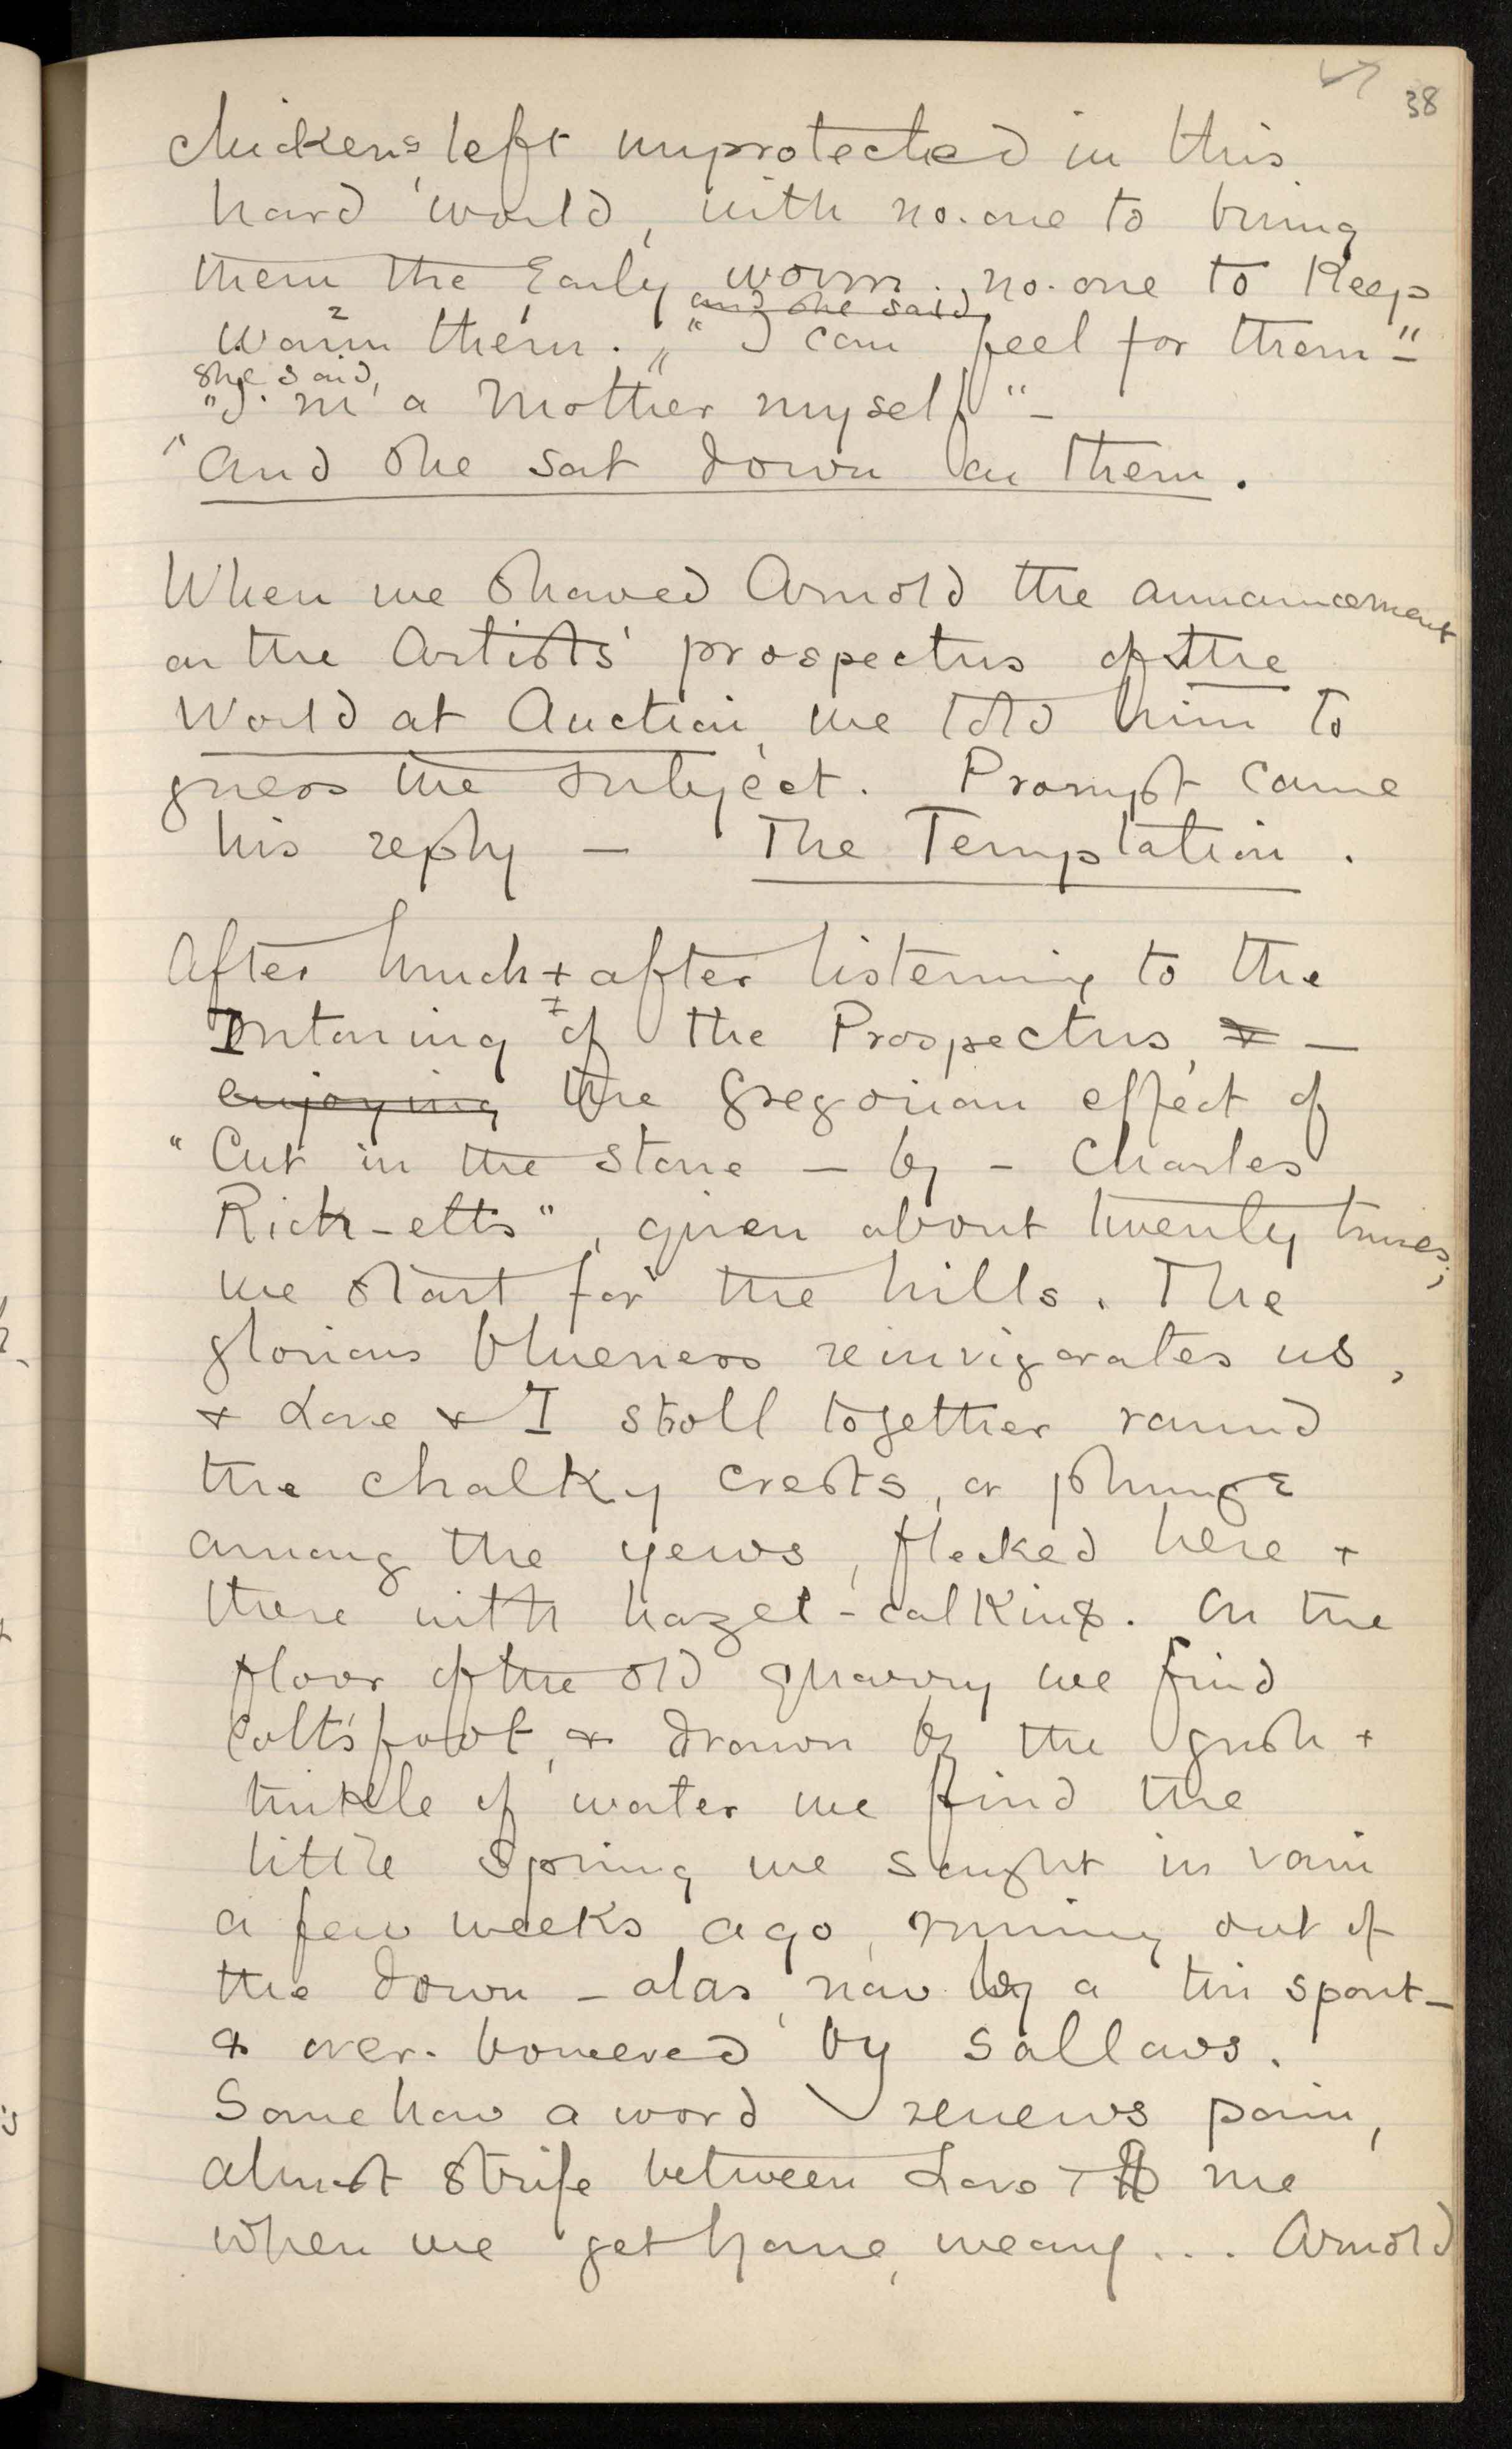 38
chickens, left unprotected in this
hard world, with no. one to bring
them the Early worm. no. one to Keep
and she said,
warm them. " " I can feel for them" –
she said,
"I'm a Mother myself" –
"And she sat down on them.
When we showed Arnold the announcement
on the Artists' prospectus of the
World at Auction, we told him to
guess the subject. Prompt came
his reply – The Temptation.
After lunch + after listening to the
Intoning of the Prospectus, & –
enjoying the gregorian effect of
"Cut in the stone – by – Charles
Rick-etts", given about twenty times;
we start for the hills. The
glorious blueness reinvigorates us,
& Love & I stroll together round
the chalky crests, or plunge
among the yews, flecked here +
there with hazel-catkins. On the
floor of the old quarry we find
Coltsfoot, & drawn by the gush +
tinkle of water we find the
little Spring we sought in vain
a few weeks ago, running out of
the down – alas, now by a tin spout –
& over-bowered by sallows.
Somehow a word renews pain,
almost strife between Love + me
when we get home, weary... Arnold